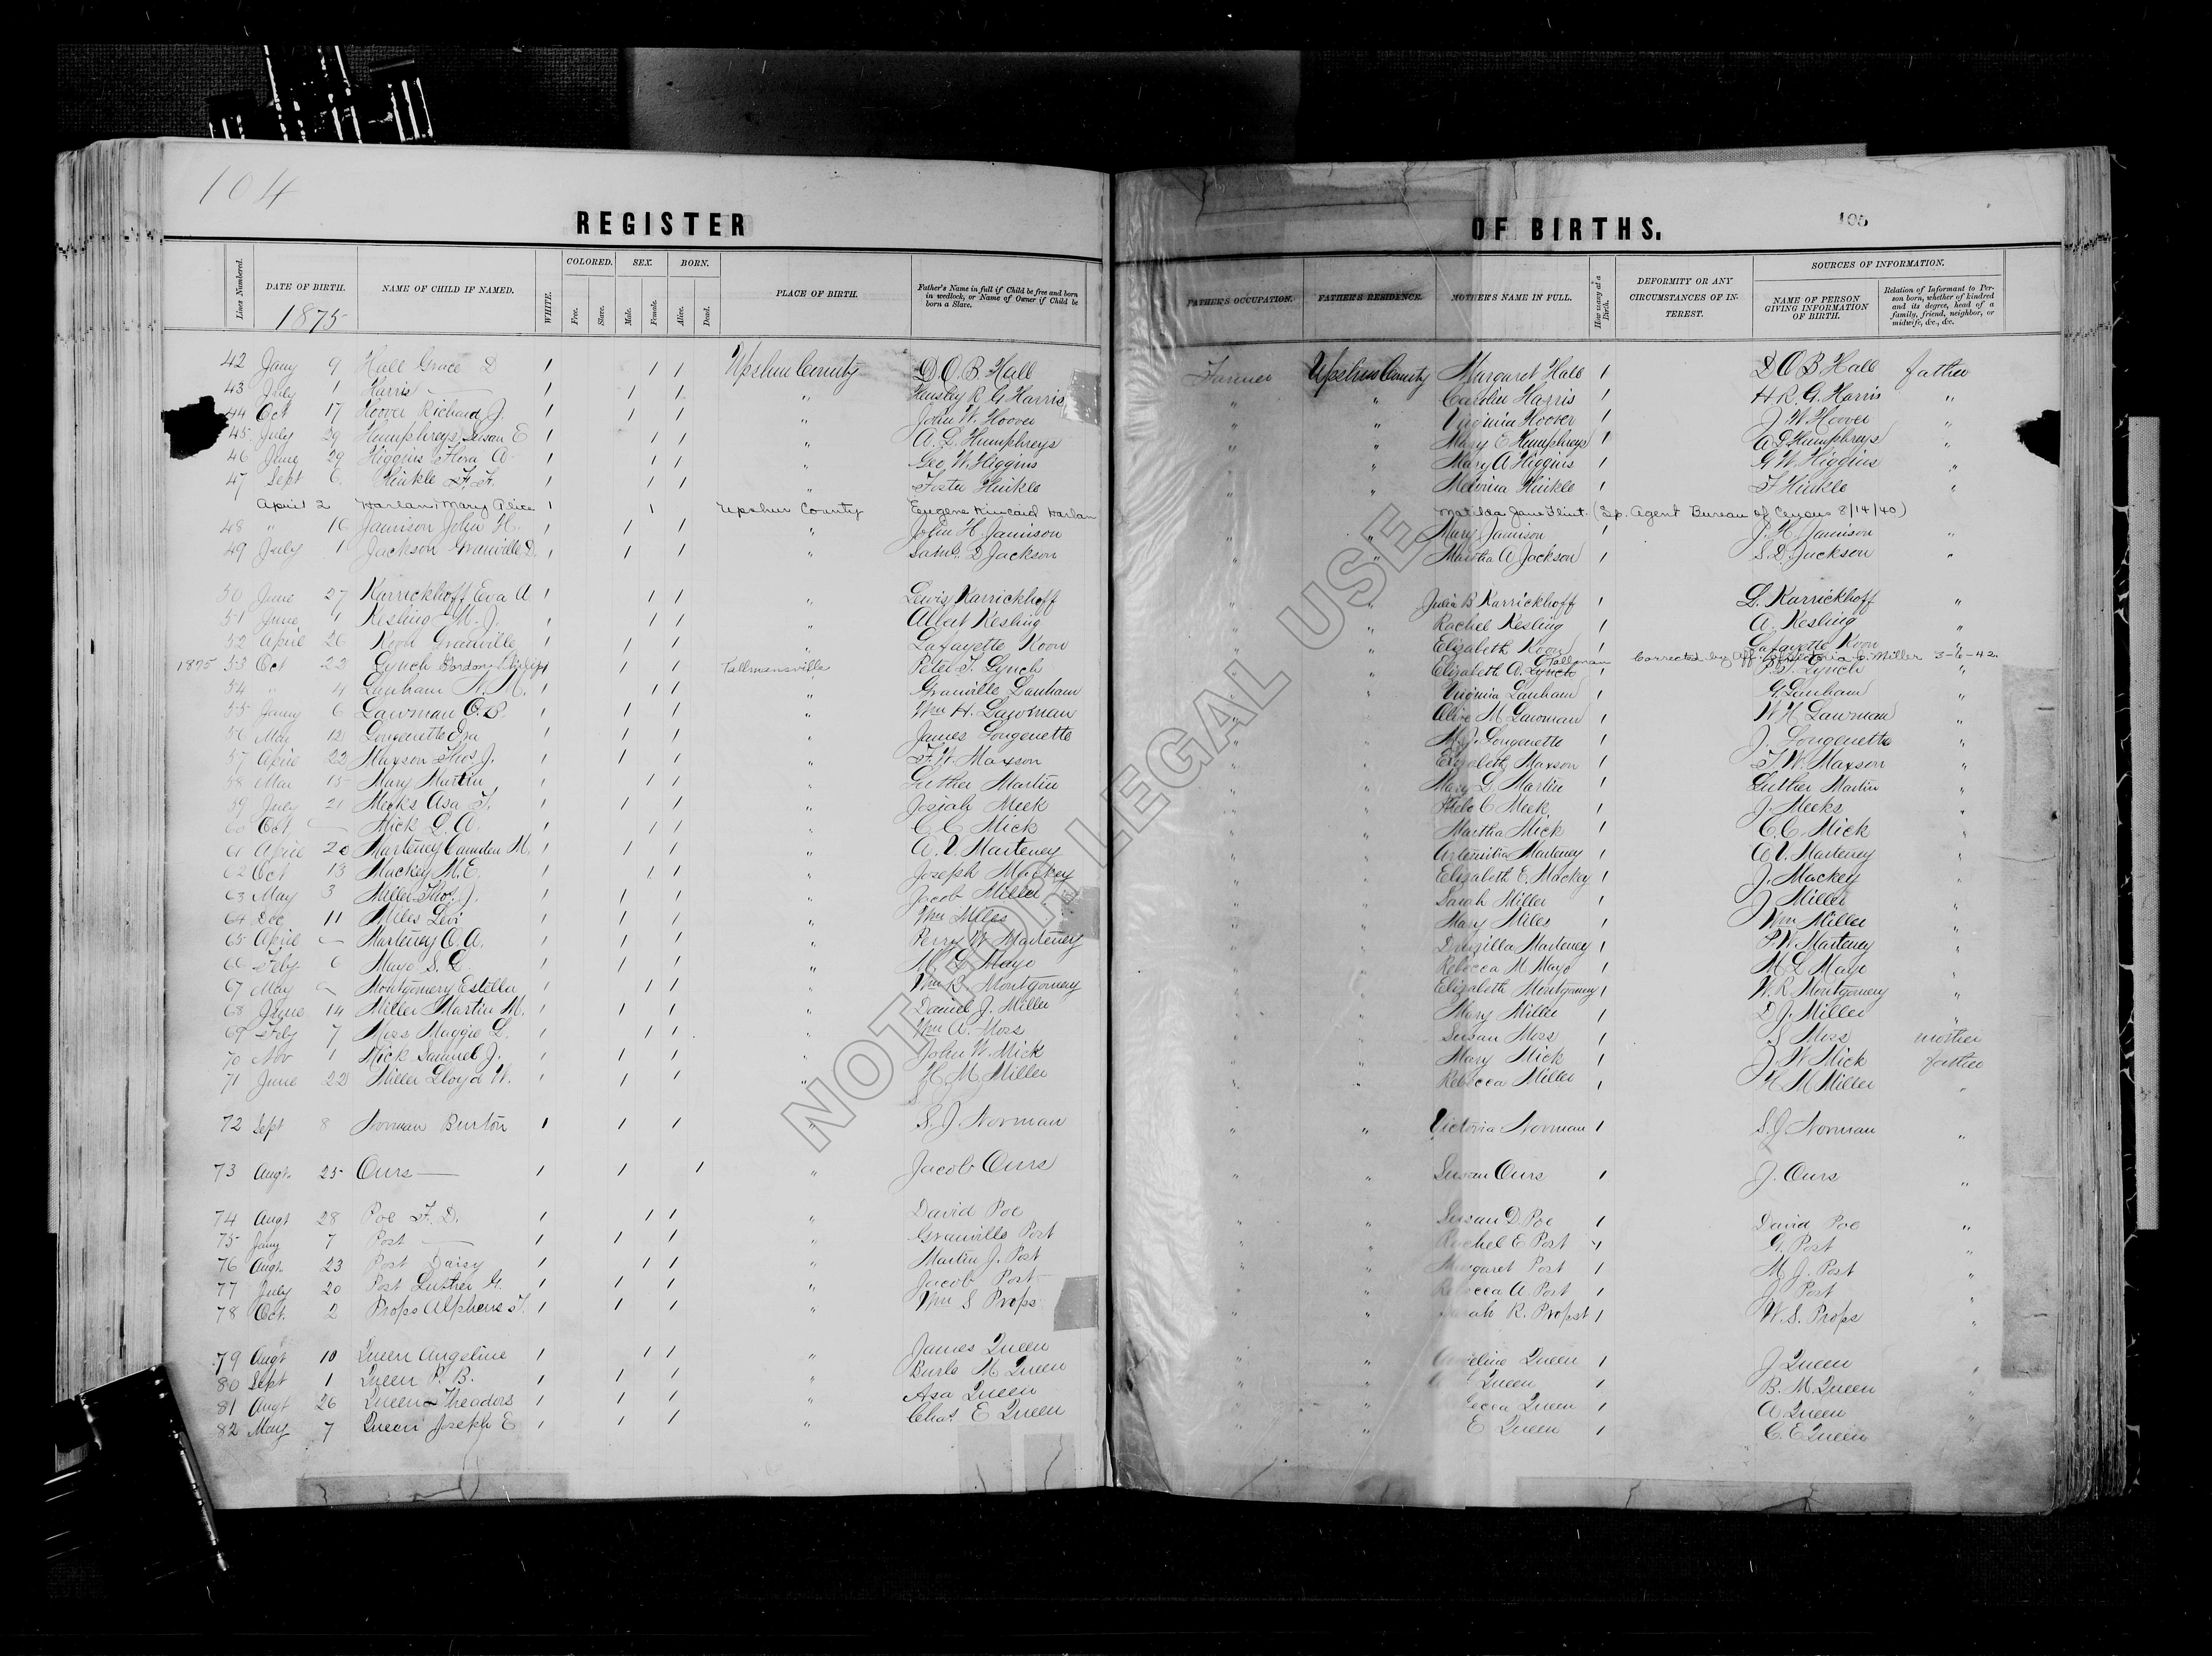 104
REGISTER OF BIRTHS. 105
Lines Numbered. DATE OF BIRTH. NAME OF CHILD IF NAMED. WHITE. COLORED. Free. Slave. SEX. Male. Female. BORN. Alive. Dead. PLACE OF BIRTH. Father's Name in full if Child be free and born in wedlock, or Name of Owner if Child be born a Slave. FATHER'S OCCUPATION. FATHER'S RESIDENCE. MOTHER'S NAME IN FULL. How many at a Birth. DEFORMITY OR ANY CIRCUMSTANCES OF INTEREST. SOURCES OF INFORMATION. NAME OF PERSON GIVING INFORMATION OF BIRTH. Relation of Informant to Person born, whether of kindred and its degree, head of a family, friend, neighbor, or midwife, &c., &c.
1875
42 Jany 9 Hall Grace D 1 1 1 Upshur County D. O. B. Hall Farmer Upshur County Margaret Hall 1 D O B Hall father
43 July 1 Harris — 1 1 1 " R G Harris " " Carolin Harris 1 H R. G. Harris "
44 Oct 17 Hoover Richard J. 1 1 1 " John W. Hoover " " Virginia Hoover 1 J W Hoover "
45 July 29 Humphreys Susan E 1 1 1 " A. L. Humphreys " " Mary E Humphreys 1 A L Humphreys "
46 June 29 Higgins Flora A 1 1 1 " Geo W. Higgins " " Mary A Higgins 1 G W. Higgins "
47 Sept 6 Hinkle F. F. 1 1 1 " Foster Hinkle " " Melvina Hinkle 1 F Hinkle "
April 2 Harlan, Mary Alice 1 1 Upshur County Eugene Kincaid Harlan Matilda Jane Flint. (Sp. Agent Bureau of Census 8/14/40)
48 " 16 Jamison John H. 1 1 1 " John H. Jamison " " Mary Jamison 1 J. H. Jamison "
49 July 1 Jackson Granville D. 1 1 1 " Saml. D Jackson " " Martha A Jackson 1 S. D. Jackson "
50 June 27 Karrickhoff Eva A 1 1 1 " Lewis Karrickhoff " " Julia B Karrickhoff 1 L. Karrickhoff "
51 June 9 Kesling M. J. 1 1 1 " Albert Kesling " " Rachel Kesling 1 A. Kesling "
52 April 26 Koon Granville 1 1 1 " Lafayette Koon " " Elizabeth Koon 1 Lafayette Koon "
1875 53 Oct 22 Lynch Gordon Philip 1 1 1 Tallmansville Peter T. Lynch " " Elizabeth A. Lynch Tallman 1 Corrected by Aff. of Victoria L. Miller 3-6-42. P. T. Lynch
54 " 4 Lanham N. M. 1 1 1 " Granville Lanham " " Virginia Lanham 1 G. Lanham "
55 Jany 6 Lawman O. B. 1 1 1 " Wm H. Lawman " " Olive M Lawman 1 W H Lawman "
56 Mar 12 Longenette Ira 1 1 1 " James Longenette " " M. J. Longenette 1 J. Longenette "
57 April 22 Maxson Thos. J. 1 1 1 " F. W. Maxson " " Elizabeth Maxson 1 F. W. Maxson "
58 Mar 15 Mary Martin 1 1 1 " Luther Martin " " Mary L Martin 1 Luther Martin "
59 July 21 Meeks Asa F. 1 1 1 " Josiah Meek " " C Meek 1 J. Meeks "
60 Oct — Mick L. A. 1 1 1 " C C Mick " " Martha Mick 1 C. C. Mick "
61 April 20 Marteney Camden M. 1 1 1 " A. V. Marteney " " Artemitia Marteney 1 A V. Marteney "
62 Oct 13 Mackey M. E. 1 1 1 " Joseph Mackey " " Elizabeth E. Mackey 1 J. Mackey "
63 May 3 Miller Thos. J. 1 1 1 " Jacob Miller " " Sarah Miller 1 J Miller "
64 Dec 11 Miles Levi 1 1 1 " Wm Miles " " Mary Miles 1 Wm Miller "
65 April — Marteney O. A. 1 1 1 " Perry W Marteney " " Drusilla Marteney 1 P W. Marteney "
66 Feby 6 Mayo S. L 1 1 1 " M L Mayo " " Rebecca M Mayo 1 M L Mayo "
67 May — Montgomery Estella 1 1 1 " Wm R. Montgomery " " Elizabeth Montgomery 1 W. R Montgomery "
68 June 14 Miller Martin M. 1 1 1 " Daniel J. Miller " " Mary Miller 1 D. J. Miller "
69 Feby 7 Moss Maggie L. 1 1 1 " Wm A. Moss " " Susan Moss 1 S Moss mother
70 Nov 1 Mick Samuel J. 1 1 1 " John W. Mick " " Mary Mick 1 J W Mick father
71 June 22 Miller Lloyd W. 1 1 1 " H. M Miller " " Rebecca Miller 1 H M Miller "
72 Sept 8 Norman Burton 1 1 1 " S. J. Norman " " Victoria Norman 1 S. J. Norman "
73 Augt. 25 Ours — 1 1 1 " Jacob Ours " " Susan Ours 1 J. Ours "
74 Augt 28 Poe F. D. 1 1 1 " David Poe " " Susan D. Poe 1 David Poe "
75 Jany 7 Post — 1 1 1 " Granville Post " " Rachel E Post 1 G. Post "
76 Augt. 23 Post Daisy 1 1 1 " Martin J. Post " " Margaret Post 1 M. J. Post "
77 July 20 Post Luther H. 1 1 1 " Jacob Post " " Rebecca A. Post 1 J Post "
78 Oct. 2 Props Alpheus F. 1 1 1 " Wm S Props " " R. Propst 1 W. S. Props "
79 Augt 10 Queen Angeline 1 1 1 " James Queen " " Queen 1 J Queen "
80 Sept 1 Queen P. B. 1 1 1 " Burle M Queen " " Queen 1 B. M. Queen "
81 Augt 26 Queen Theadors 1 1 1 " Asa Queen " " Queen 1 A Queen "
82 May 7 Queen Joseph E 1 1 1 " Chas. E Queen " " E Queen 1 C. E Queen "
NOT FOR LEGAL USE